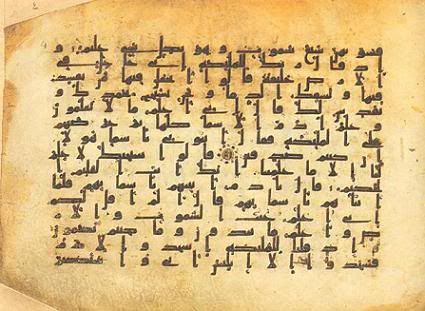 فسويهن سبع سموت و هو بكل شيء عليم و
اذ قال ربك للملئكة اني جاعل في
الارض خليفة قالوا اتجعل فيها من يفسد
فيها و يسفك الدما و نحن نسبح بحمدك و
نقدس لك قال اني اعلم ما لا تعلمون
و علم ادم الاسما كلها ثم عرضهم
على الملئكة فقال انبوني باسما هولا
ان كنتم صدقين قالوا سبحنك لا علم
لنا الا ما علمتنا انك انت العليم ا
لحكيم قال يادم انبئهم باسمائهم فلما
انباهم باسمائهم قال الم اقل لكم
اني اعلم غيب السموت و الا
رض و اعلم ما تبدون و ما كنتم تكتمون
و اذ قلنا للملئكة اسجدوا لادم
فسجدوا الا ابليس ابى و استكبر